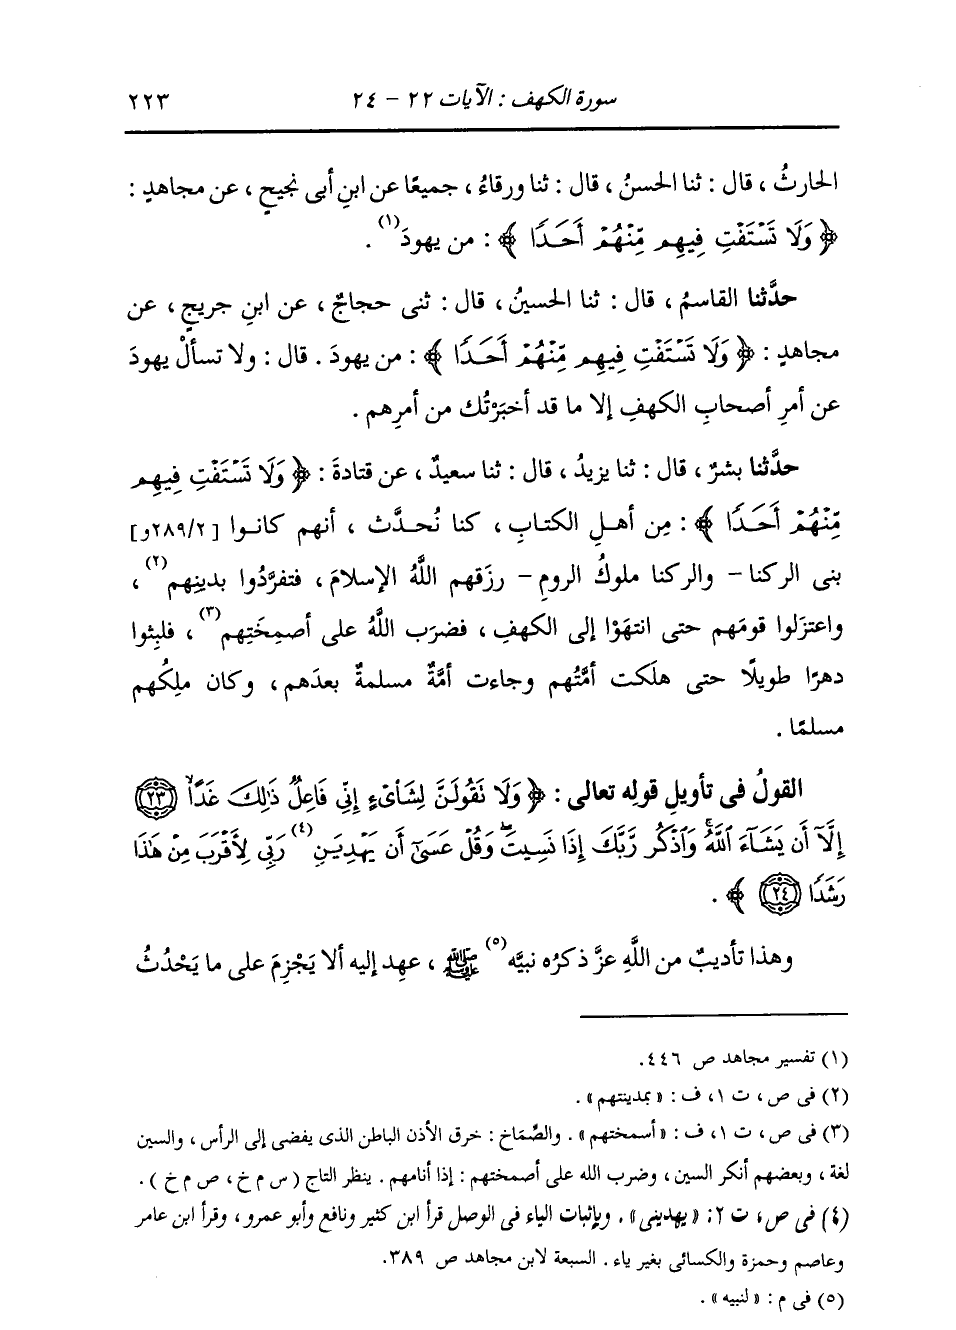 سورة الكهف : الآيات ٢٢ - ٢٤ ٢٢٣
الحارثُ ، قال : ثنا الحسنُ ، قال : ثنا ورقاءُ ، جميعًا عن ابنِ أبى نجيحٍ ، عن مجاهدٍ :
﴿ وَلَا تَسْتَفْتِ فِيهِم مِّنْهُمْ أَحَدًا ﴾ : من يهودَ(١) .
حدَّثنا القاسمُ ، قال : ثنا الحسينُ ، قال : ثنى حجاجٌ ، عن ابنِ جريجٍ ، عن
مجاهدٍ : ﴿ وَلَا تَسْتَفْتِ فِيهِم مِّنْهُمْ أَحَدًا ﴾ : من يهودَ . قال : ولا تسألْ يهودَ
عن أمرِ أصحابِ الكهفِ إلا ما قد أخبَرْتُك من أمرِهم .
حدَّثنا بشرٌ ، قال : ثنا يزيدُ ، قال : ثنا سعيدٌ ، عن قتادةَ : ﴿ وَلَا تَسْتَفْتِ فِيهِم
مِّنْهُمْ أَحَدًا ﴾ : مِن أهلِ الكتابِ ، كنا نُحدَّث ، أنهم كانوا [٢٨٩/٢و]
بنى الركنا - والركنا ملوكُ الرومِ - رزَقهم اللَّهُ الإسلامَ ، فتفرَّدُوا بدينِهم(٢) ،
واعتزَلوا قومَهم حتى انتهَوْا إلى الكهفِ ، فضرَب اللَّهُ على أصمِخَتِهم(٣) ، فلبِثوا
دهرًا طويلًا حتى هلَكت أمَّتُهم وجاءت أمَّةٌ مسلمةٌ بعدَهم ، وكان ملِكُهم
مسلمًا .
القولُ فى تأويلِ قولِه تعالى : ﴿ وَلَا تَقُولَنَّ لِشَاْىْءٍ إِنِّي فَاعِلٌ ذَٰلِكَ غَدًا ۝٢٣
إِلَّآ أَن يَشَآءَ ٱللَّهُ ۚ وَٱذْكُر رَّبَّكَ إِذَا نَسِيتَ وَقُلْ عَسَىٰٓ أَن يَهْدِيَنِ(٤) رَبِّي لِأَقْرَبَ مِنْ هَٰذَا
رَشَدًا ۝٢٤ ﴾ .
وهذا تأديبٌ من اللَّهِ عزَّ ذكرُه نبيَّه(٥) ﷺ ، عهِد إليه ألا يَجْزِمَ على ما يَحْدُثُ
(١) تفسير مجاهد ص ٤٤٦.
(٢) فى ص ، ت ١، ف : « بمدينتهم » .
(٣) فى ص ، ت ١، ف : « أسمختهم » . والصِّمَاخ : خرق الأذن الباطن الذى يفضى إلى الرأس ، والسين
لغة ، وبعضهم أنكر السين ، وضرب الله على أصمختهم : إذا أنامهم . ينظر التاج ( س م خ ، ص م خ ) .
(٤) فى ص ، ت ٢: « يهدينى » . وبإثبات الياء فى الوصل قرأ ابن كثير ونافع وأبو عمرو ، وقرأ ابن عامر
وعاصم وحمزة والكسائى بغير ياء . السبعة لابن مجاهد ص ٣٨٩.
(٥) فى م : « لنبيه » .